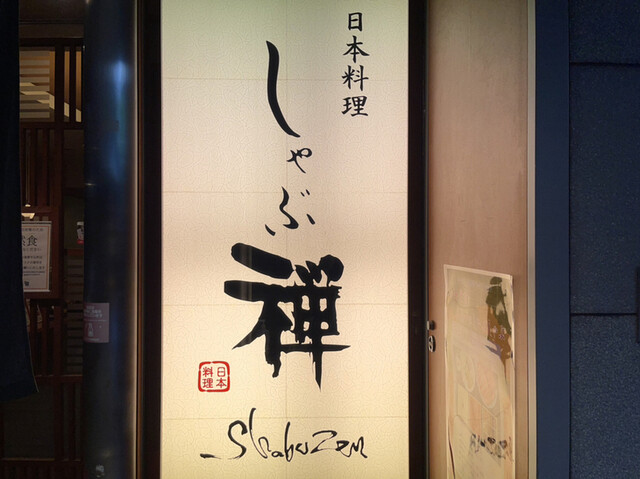 日本料理
しゃぶ禅
日本
料理
Shabu Zen